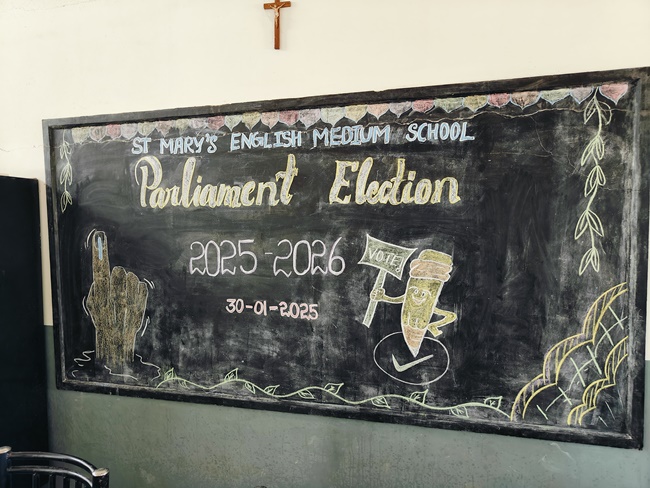 ST MARY'S ENGLISH MEDIUM SCHOOL
Parliament Election
2025-2026
VOTE!
30-01-2025